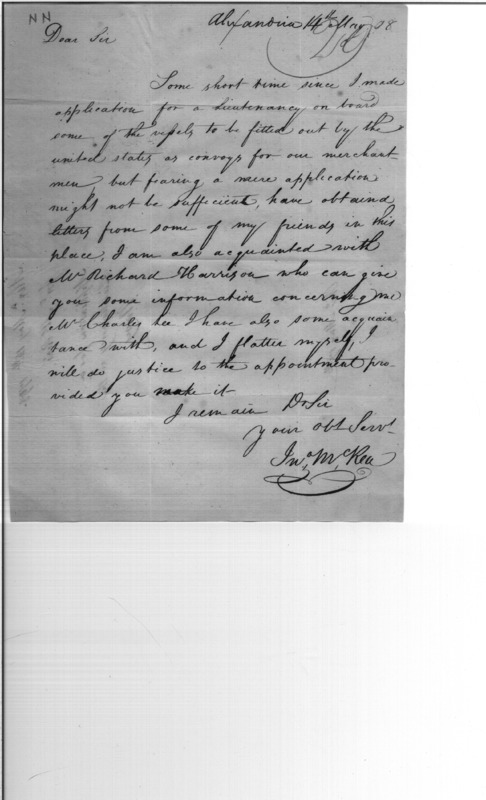 NN
Alexandria 14th May 98
Dear Sir
Some short time since I made
application for a Lieutenancy on board
some of the vessels to be fitted out by the
united states as convoys for our merchant-
men, but fearing a mere application
might not be sufficient, have obtaind
letters from some of my friends in this
place, I am also acquainted with
Mr Richard Harrison who can give
you some information concerning me
Mr Charles Lee I have also some acquain
tance with, and I flatter myself, I
will do justice to the appointment pro-
vided you make it
I remain Dr Sir
your obt Servt
Jno McRea